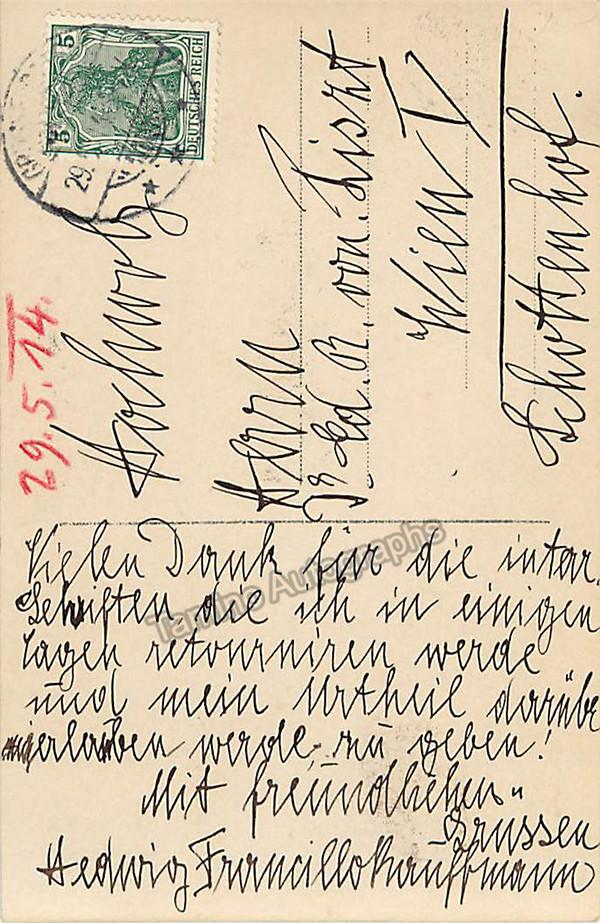 5
5
DEUTSCHES REICH
29.
29.5.14.
Herrn
Dr Ed. R. von Liszt
Wien I
Schottenhof.
Vielen Dank für die inter.
Schriften, die ich in einigen
Tagen retourniren werde
und mein Urtheil darübe
mir erlauben werde, zu geben!
Mit freundlichen
Grussen
Hedwig Francillo Kauffmann
Tamino Autographs